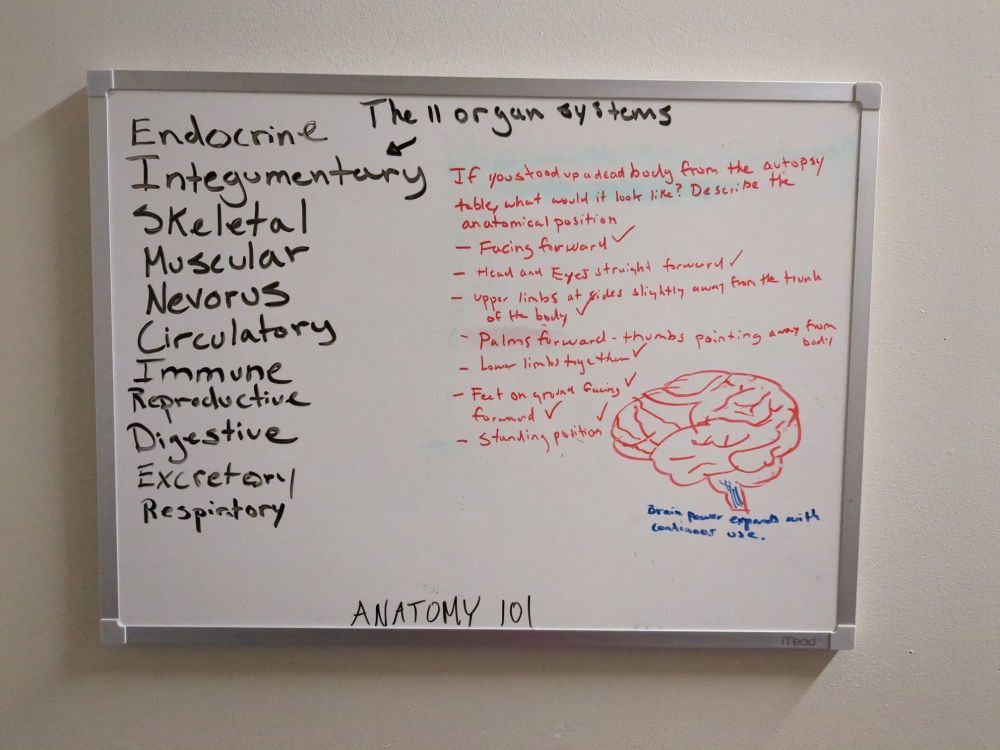 The 11 organ systems
Endocrine
Integumentary
Skeletal
Muscular
Nevorus
Circulatory
Immune
Reproductive
Digestive
Excretory
Respirtory
If you stood up a dead body from the autopsy
table, what would it look like? Describe the
anatomical position
- Facing forward ✓
- Head and Eyes straight forward ✓
- upper limbs at sides slightly away from the trunk
of the body ✓
- Palms forward - thumbs pointing away from
body
- Lower limbs together ✓
- Feet on ground facing ✓
forward ✓
- Standing position ✓
Brain power expands with
continuous use.
ANATOMY 101
Mead